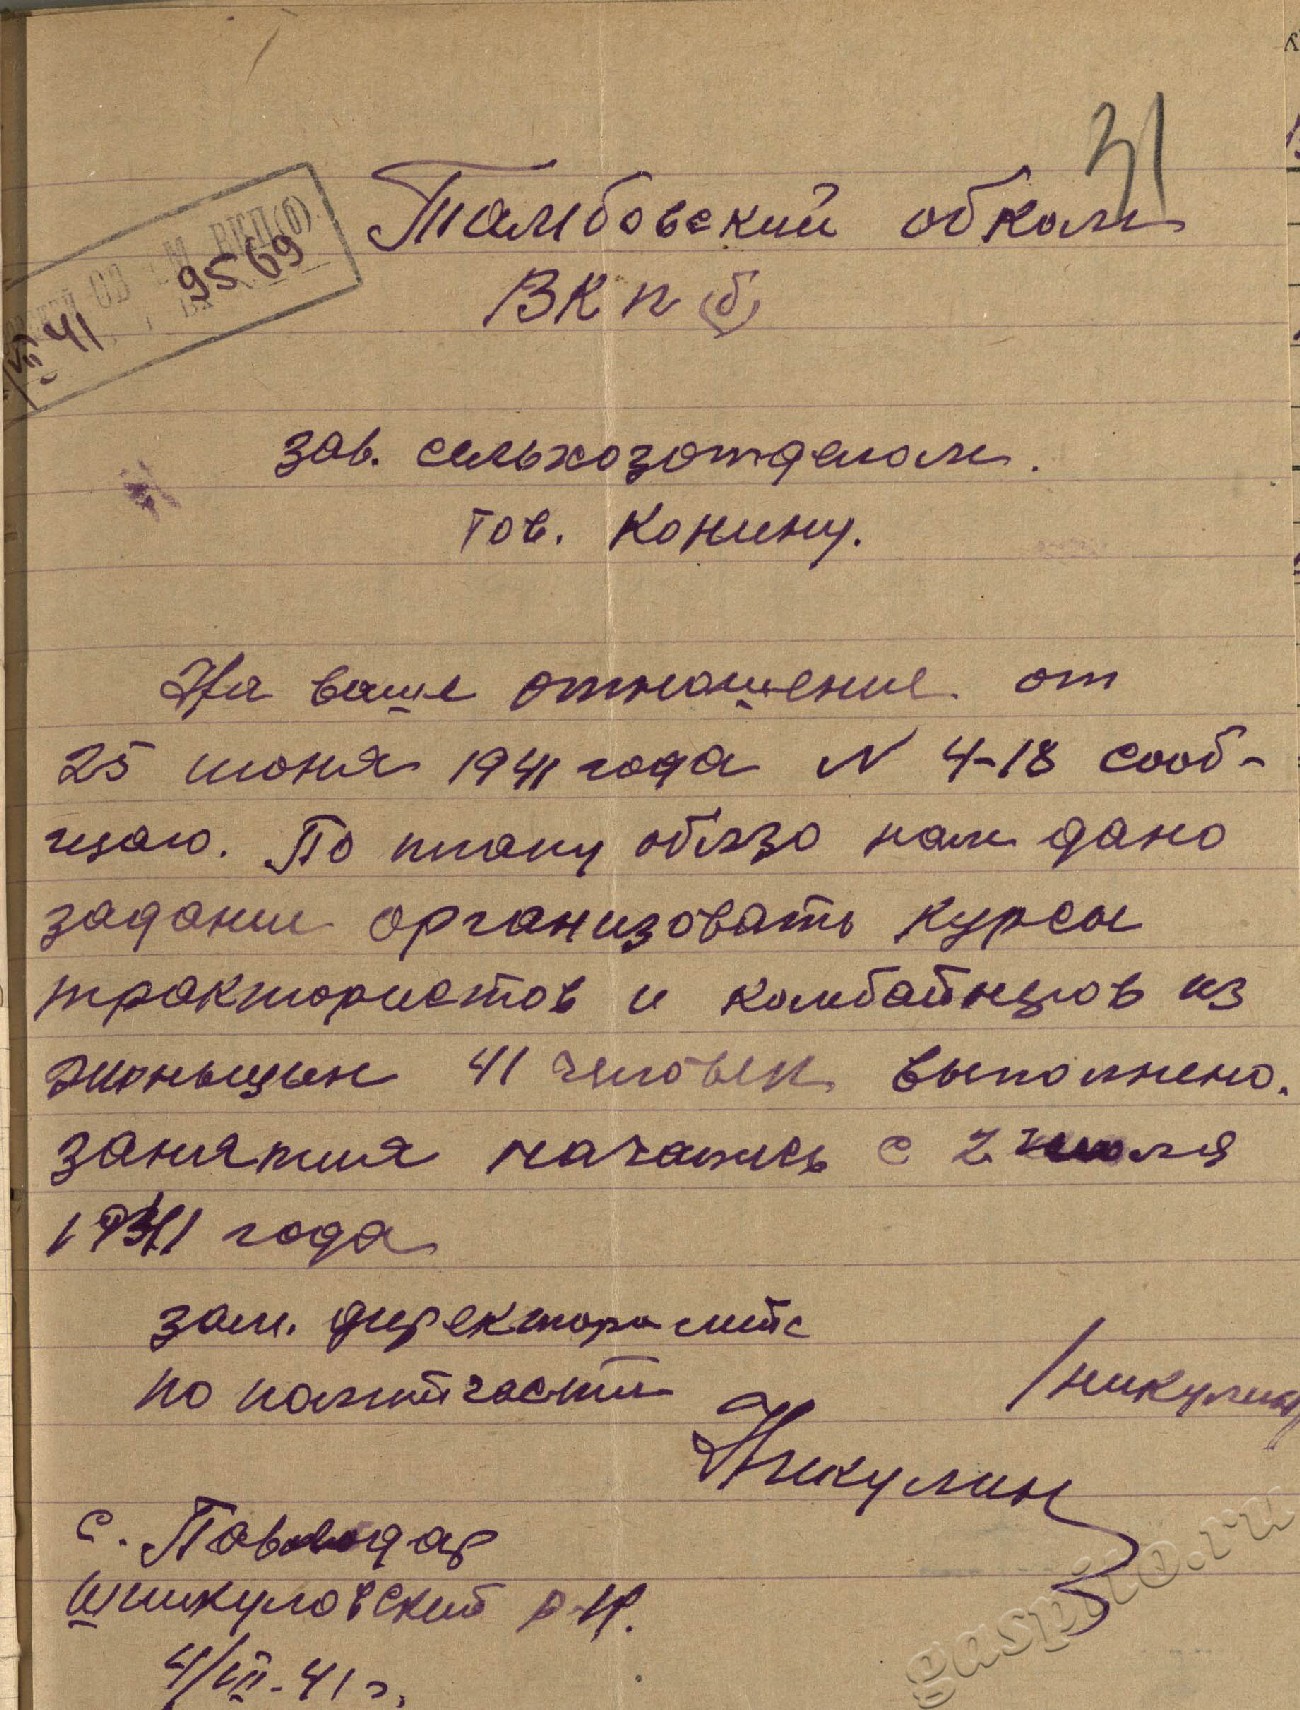 31
Тамбовский обком
ВКП(б)
9569
VII 41
зав. сельхозотделом.
тов. Конину.
На ваше отношение от
25 июня 1941 года N 4-18 сооб-
щаю. По плану облзо нам дано
задание организовать курсы
трактористов и комбайнеров из
женьщын 41 человек выполнено.
занятия начались с 2 июля
1941 года
зам. директора мтс
по политчасти
/Никулин/
Никулин
с. Павлодар
Шпикуловский р-н.
4/VII-41 г.
gaspito.ru